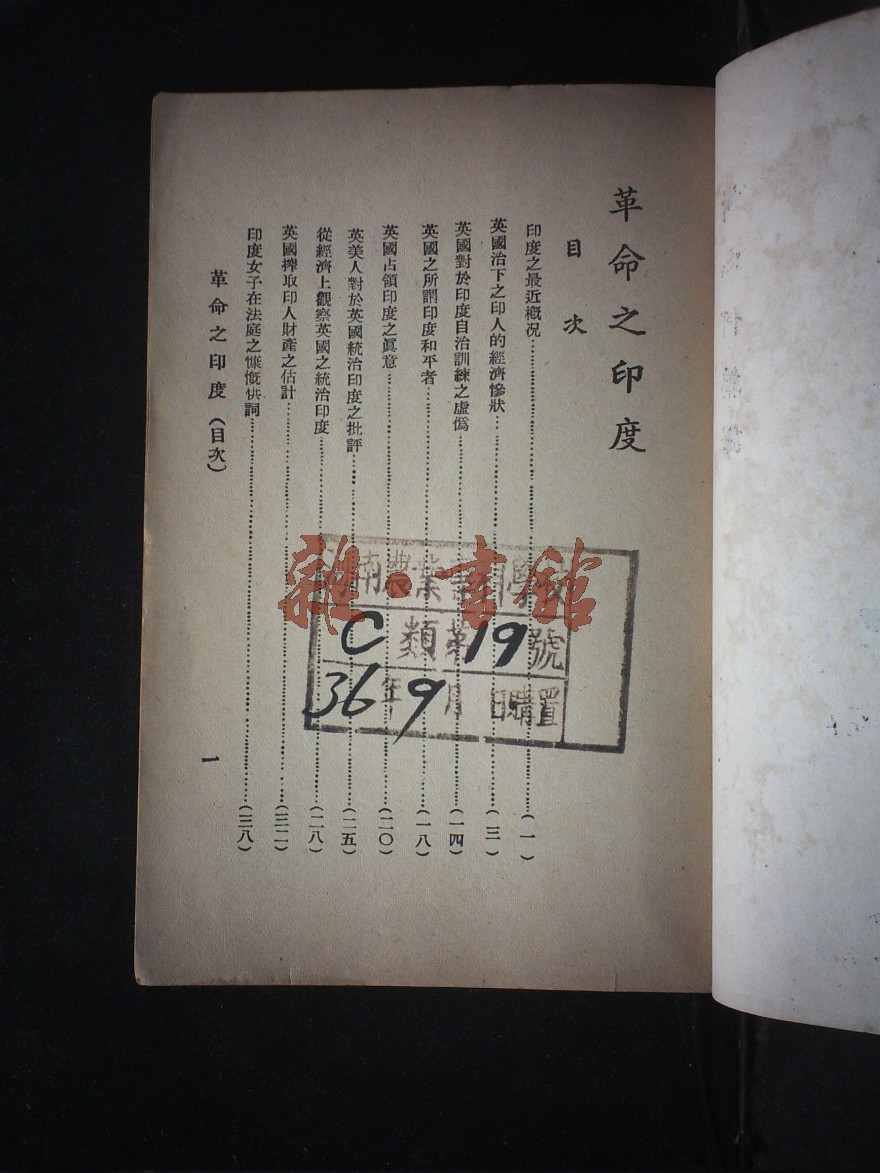 革命之印度
目次
印度之最近概況……(一)
英國治下之印人的經濟慘狀……(三)
英國對於印度自治訓練之虛僞……(一四)
英國之所謂印度和平者……(一八)
英國占領印度之眞意……(二〇)
英美人對於英國統治印度之批評……(二五)
從經濟上觀察英國之統治印度……(二八)
英國搾取印人財產之估計……(三二)
印度女子在法庭之慷慨供詞……(三八)
革命之印度(目次)
一
南農業
C類第19號
36年9月 日購置
雜·書館